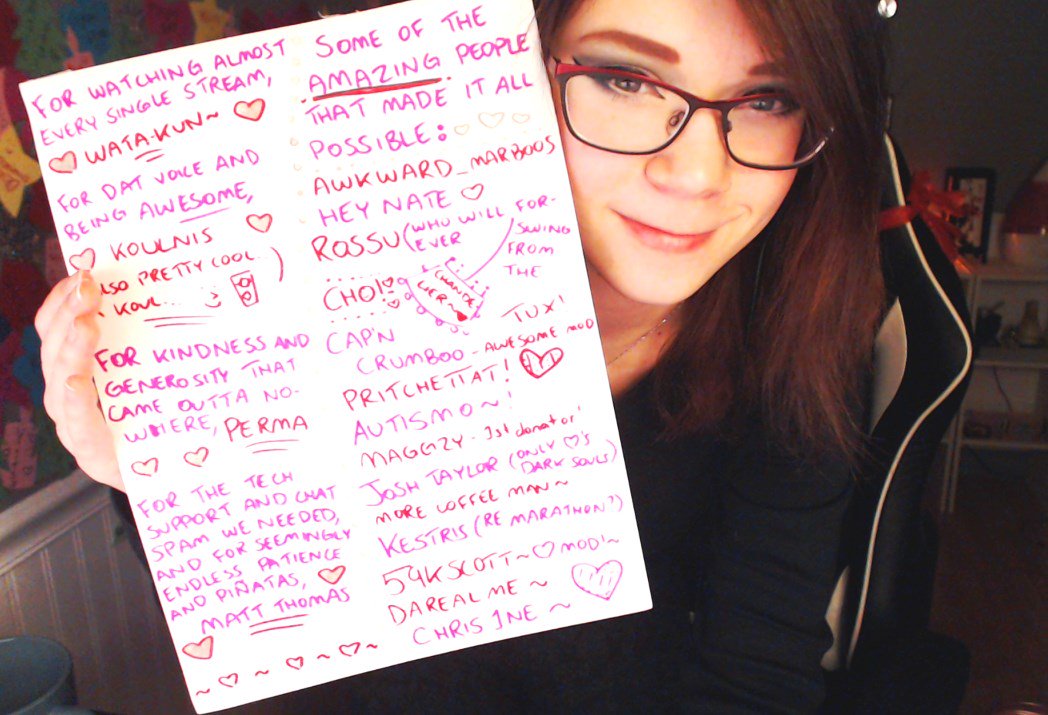 FOR WATCHING ALMOST
EVERY SINGLE STREAM,
WATA-KUN~
FOR DAT VOICE AND
BEING AWESOME,
KOULNIS
ALSO PRETTY COOL..
KOUL...
FOR KINDNESS AND
GENEROSITY THAT
CAME OUTTA NO-
WHERE, PERMA
FOR THE TECH
SUPPORT AND CHAT
SPAM WE NEEDED,
AND FOR SEEMINGLY
ENDLESS PATIENCE
AND PIÑATAS,
MATT THOMAS
SOME OF THE
AMAZING PEOPLE
THAT MADE IT ALL
POSSIBLE:
AWKWARD_MARBOOS
HEY NATE
ROSSU (WHO WILL FOR-
EVER SWING
FROM
THE
CHANDE
LIER)
CHO!
CAP'N
CRUMBOO - AWESOME MOD
TUX!
PRITCHETTAT!
AUTISMO~!
MAGGIZY - 1st donator!
JOSH TAYLOR (ONLY ♡'S
DARK SOULS)
MORE COFFEE MAN~
KESTRIS (RE MARATHON?)
54KSCOTT~♡MOD!~
DAREALME~
CHRIS1NE~